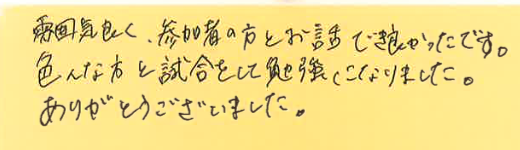 雰囲気良く、参加者の方とお話できて良かったです。
色んな方と試合をして勉強になりました。
ありがとうございました。